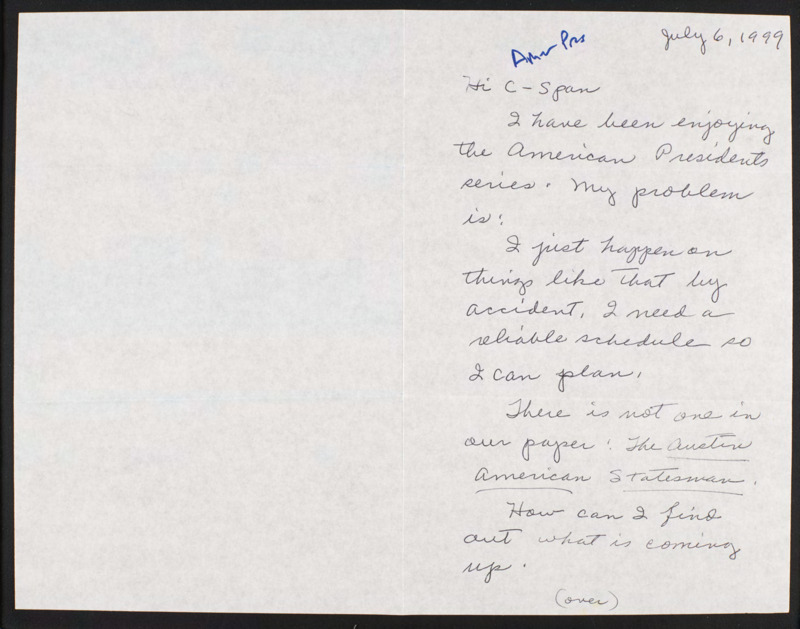 July 6, 1999
Amer Pres
Hi C-Span
I have been enjoying
the American Presidents
series. My problem
is:
I just happen on
things like that by
accident. I need a
reliable schedule so
I can plan.
There is not one in
our paper: The Austin
American Statesman.
How can I find
out what is coming
up.
(over)